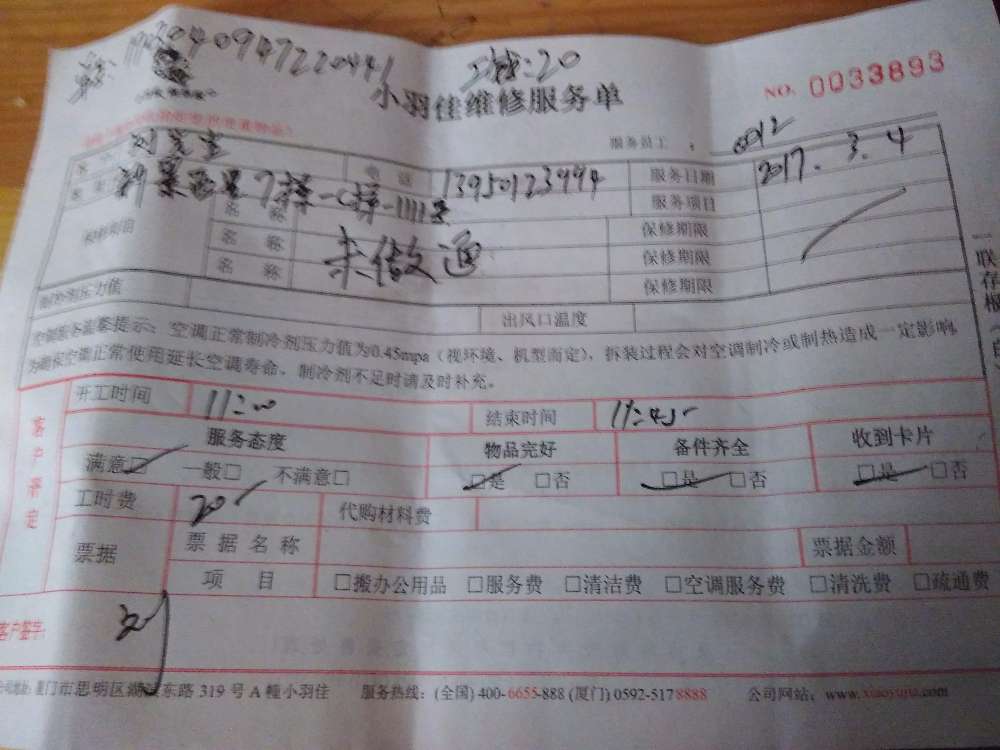 2040947220441 工牌:20
小羽佳维修服务单 NO. 0033893
服务员工: 0012
刘先生 电话 13950123994 服务日期 2017.3.4
7梯-C梯-1111室 服务项目
名称 保修期限
名称 未做通 保修期限
名称 保修期限
制冷剂压力值 出风口温度
空调服务温馨提示:空调正常制冷剂压力值为0.45mpa(视环境、机型而定),拆装过程会对空调制冷或制热造成一定影响,
为确保空调正常使用延长空调寿命,制冷剂不足时请及时补充。
客户署定
开工时间 11:00 结束时间 11:45
服务态度 物品完好 备件齐全 收到卡片
满意□ 一般□ 不满意□ □是 □否 □是 □否 □是 □否
工时费 20 代购材料费
票据 票据名称 票据金额
项目 □搬办公用品 □服务费 □清洁费 □空调服务费 □清洗费 □疏通费
客户签字: 刘
公司地址:厦门市思明区湖滨东路 319 号 A 幢小羽佳 服务热线:(全国) 400-6655-888 (厦门) 0592-5178888 公司网站:www.xiaoyujia.com
一联存根